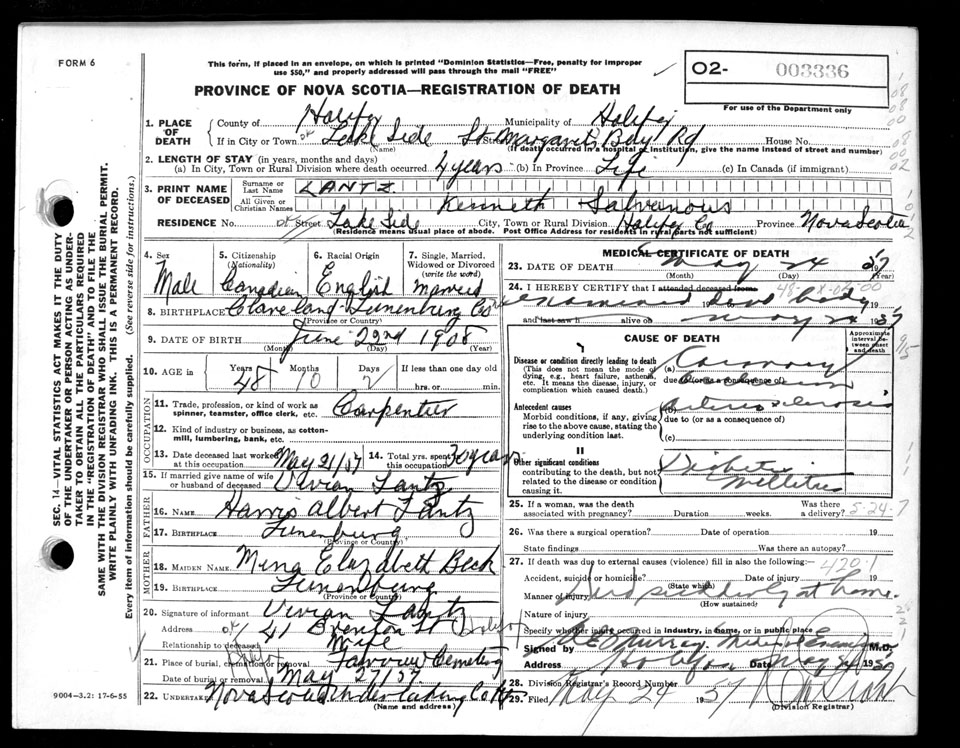 FORM 6
This form, if placed in an envelope, on which is printed "Dominion Statistics—Free, penalty for improper
use $50," and properly addressed will pass through the mail "FREE"
O2- 003336
For use of the Department only
PROVINCE OF NOVA SCOTIA—REGISTRATION OF DEATH
SEC. 14—VITAL STATISTICS ACT MAKES IT THE DUTY
OF THE UNDERTAKER OR PERSON ACTING AS UNDER-
TAKER TO OBTAIN ALL THE PARTICULARS REQUIRED
IN THE "REGISTRATION OF DEATH" AND TO FILE THE
SAME WITH THE DIVISION REGISTRAR WHO SHALL ISSUE THE BURIAL PERMIT.
WRITE PLAINLY WITH UNFADING INK. THIS IS A PERMANENT RECORD.
Every item of information should be carefully supplied. (See reverse side for instructions.)
1. PLACE OF DEATH
County of Halifax Municipality of Halifax
If in City or Town or Lake Side Street St Margarets Bay Rd House No.
(Name) (If death occurred in a hospital or institution, give the name instead of street and number)
2. LENGTH OF STAY (in years, months and days)
(a) In City, Town or Rural Division where death occurred 4 years (b) In Province Life (c) In Canada (if immigrant)
3. PRINT NAME OF DECEASED
Surname or Last Name LANTZ
All Given or Christian Names Kenneth Salvanous
RESIDENCE No. or Street Lake Side City, Town or Rural Division Halifax Co Province Nova Scotia
(Residence means usual place of abode. Post Office Address for residents in rural parts not sufficient)
4. Sex Male
5. Citizenship (Nationality) Canadian
6. Racial Origin English
7. Single, Married, Widowed or Divorced (write the word) married
8. BIRTHPLACE Claveland Lunenburg Co
(Province or Country)
9. DATE OF BIRTH June 22nd 1908
(Month) (Day) (Year)
10. AGE in Years 48 Months 10 Days 2 If less than one day
hrs. or min.
OCCUPATION
11. Trade, profession, or kind of work as spinner, teamster, office clerk, etc. Carpenter
12. Kind of industry or business, as cotton-mill, lumbering, bank, etc.
13. Date deceased last worked at this occupation May 21/57 14. Total yrs. spent at this occupation 30 years
15. If married give name of wife or husband of deceased Vivian Lantz
FATHER
16. NAME Harris Albert Lantz
17. BIRTHPLACE Lunenburg
(Province or Country)
MOTHER
18. MAIDEN NAME Mina Elizabeth Beck
19. BIRTHPLACE Lunenburg
(Province or Country)
20. Signature of informant Vivian Lantz
Address of 41 Brenton St Halifax
Relationship to deceased Wife
21. Place of burial, cremation or removal Fairview Cemetery
Date of burial or removal May 27/57
22. UNDERTAKER Nova Scotia Undertaking Co
(Name and address)
9004—3.2: 17-6-55
MEDICAL CERTIFICATE OF DEATH
23. DATE OF DEATH May 24 1957
(Month) (Day) (Year)
24. I HEREBY CERTIFY that I attended deceased from
examined dead body 19
and last saw h alive on May 24 1957
CAUSE OF DEATH
Approximate interval between onset and death
I
Disease or condition directly leading to death
(This does not mean the mode of dying, e.g., heart failure, asthenia, etc. It means the disease, injury, or complication which caused death.)
(a) Coronary occlusion
due to (or as a consequence of)
Antecedent causes
Morbid conditions, if any, giving rise to the above cause, stating the underlying condition last.
(b) arteriosclerosis
due to (or as a consequence of)
(c)
II
Other significant conditions
contributing to the death, but not related to the disease or condition causing it.
Diabetes Mellitus
25. If a woman, was the death associated with pregnancy? Duration weeks. Was there a delivery?
5-24-7
26. Was there a surgical operation? Date of operation 19
State findings Was there an autopsy?
27. If death was due to external causes (violence) fill in also the following:
420.1
Accident, suicide or homicide? Date of injury 19
(State which)
Manner of injury Died suddenly at home
(How sustained)
Nature of injury
Specify whether injury occurred in industry, in home, or in public place
Signed by Murray Medical Examiner M.D.
Address Halifax Date May 24 19
28. Division Registrar's Record Number
29. Filed May 24 1957
(Division Registrar)